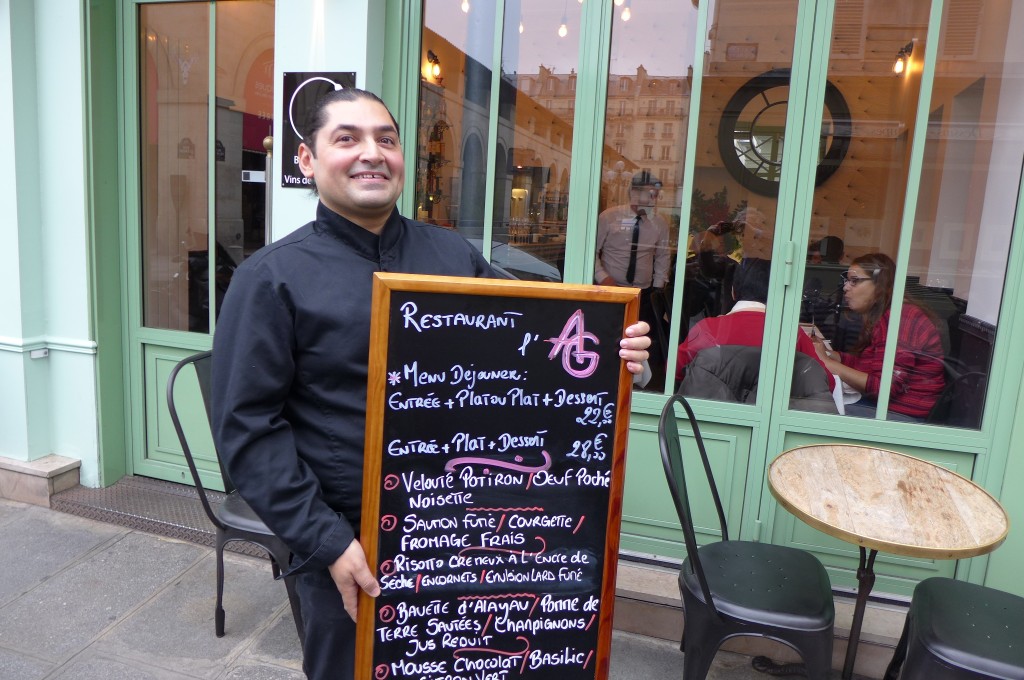 Vins de
RESTAURANT
l' AG
* MENU DÉJEUNER:
ENTRÉE + PLAT OU PLAT + DESSERT
22,00€
ENTRÉE + PLAT + DESSERT 28,00€
VELOUTÉ POTIRON / OEUF POCHÉ
NOISETTE
SAUMON FUMÉ / COURGETTE /
FROMAGE FRAIS
RISOTTO CRÉMEUX A L'ENCRE DE
SÈCHE / ENCORNETS / EMULSION LARD FUMÉ
BAVETTE D'ALOYAU / POMME DE
TERRE SAUTÉES / CHAMPIGNONS /
JUS REDUIT
MOUSSE CHOCOLAT / BASILIC /
CITRON VERT